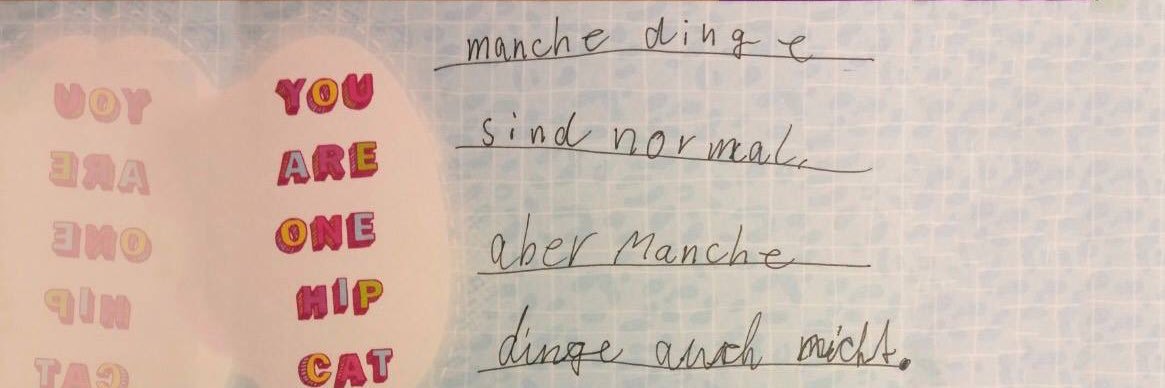 YOU
ARE
ONE
HIP
CAT
manche dinge
sind normal,
aber Manche
dinge auch nicht.